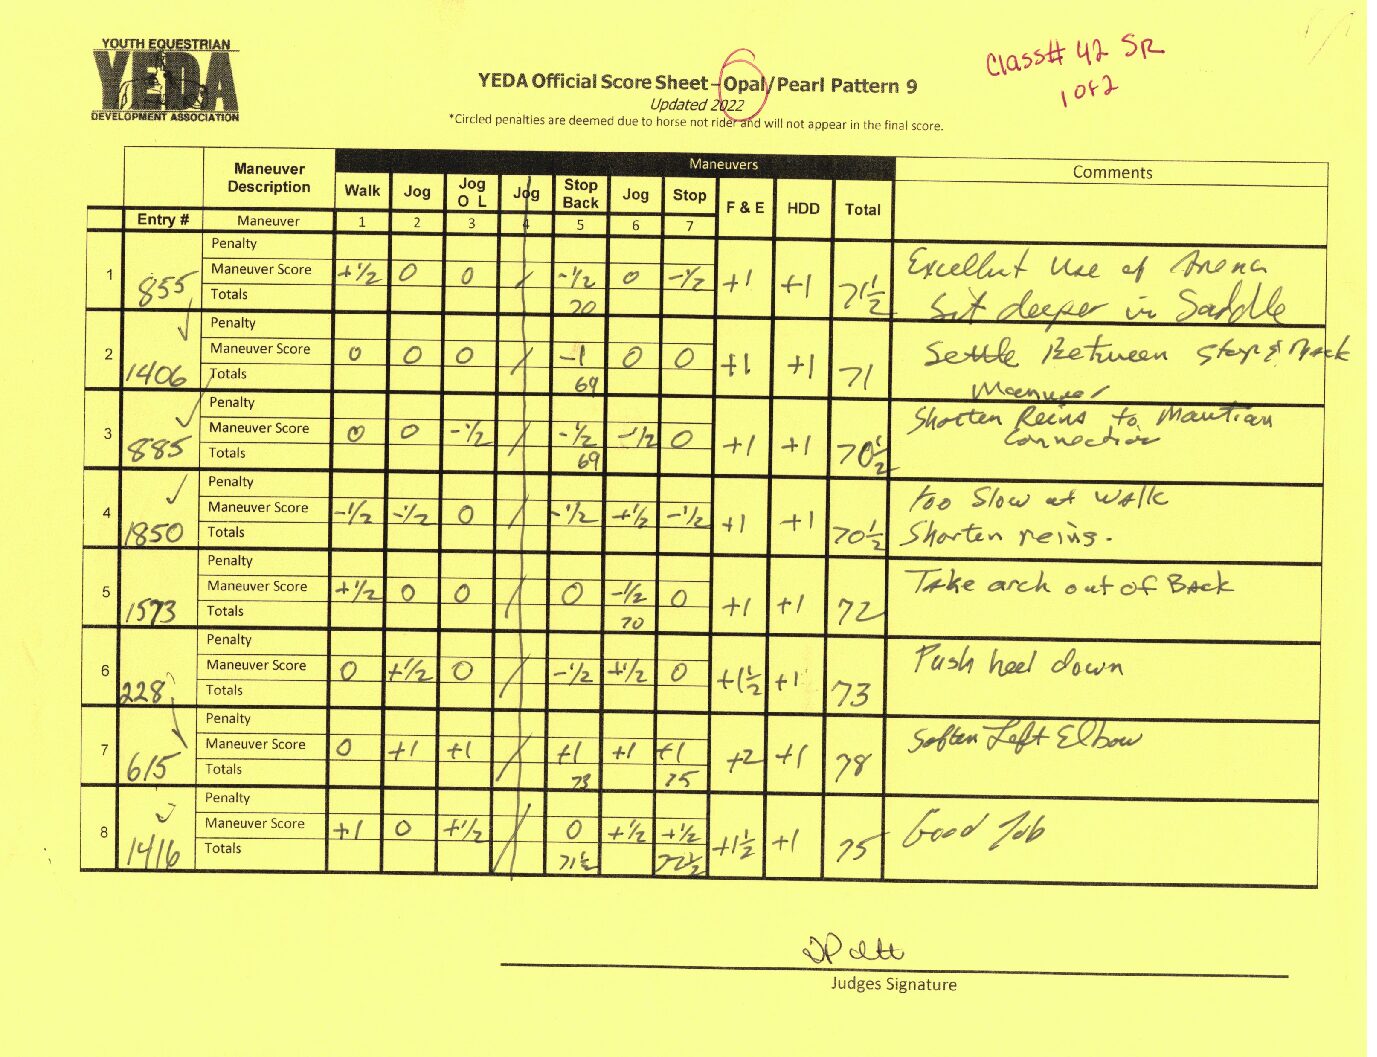 YOUTH EQUESTRIAN
YEDA
DEVELOPMENT ASSOCIATION
Class# 42 SR
1 of 2
YEDA Official Score Sheet–Opal/Pearl Pattern 9
Updated 2022
*Circled penalties are deemed due to horse not rider and will not appear in the final score.
Maneuver Description Maneuvers Comments
Walk Jog Jog O L Jog Stop Back Jog Stop F & E HDD Total
Entry # Maneuver 1 2 3 4 5 6 7
1 855
Penalty
Maneuver Score +1/2 0 0 / -1/2 0 -1/2 +1 +1 71 1/2
Totals 70
Excellent Use of Arena
Sit deeper in Saddle
2 1406
Penalty
Maneuver Score 0 0 0 / -1 0 0 +1 +1 71
Totals 69
Settle Between Stop & Back
Manuver
3 885
Penalty
Maneuver Score 0 0 -1/2 / -1/2 -1/2 0 +1 +1 70 1/2
Totals 69
Shorten Reins to Maintian
Connection
4 1850
Penalty
Maneuver Score -1/2 -1/2 0 / -1/2 +1/2 -1/2 +1 +1 70 1/2
Totals
too Slow at walk
Shorten reins.
5 1573
Penalty
Maneuver Score +1/2 0 0 / 0 -1/2 0 +1 +1 72
Totals 70
Take arch out of Back
6 228
Penalty
Maneuver Score 0 +1/2 0 / -1/2 +1/2 0 +1 1/2 +1 73
Totals
Push heel down
7 615
Penalty
Maneuver Score 0 +1 +1 / +1 +1 +1 +2 +1 78
Totals 73 75
Soften Left Elbow
8 1416
Penalty
Maneuver Score +1 0 +1/2 / 0 +1/2 +1/2 +1 1/2 +1 75
Totals 71 1/2 72 1/2
Good Job
Judges Signature